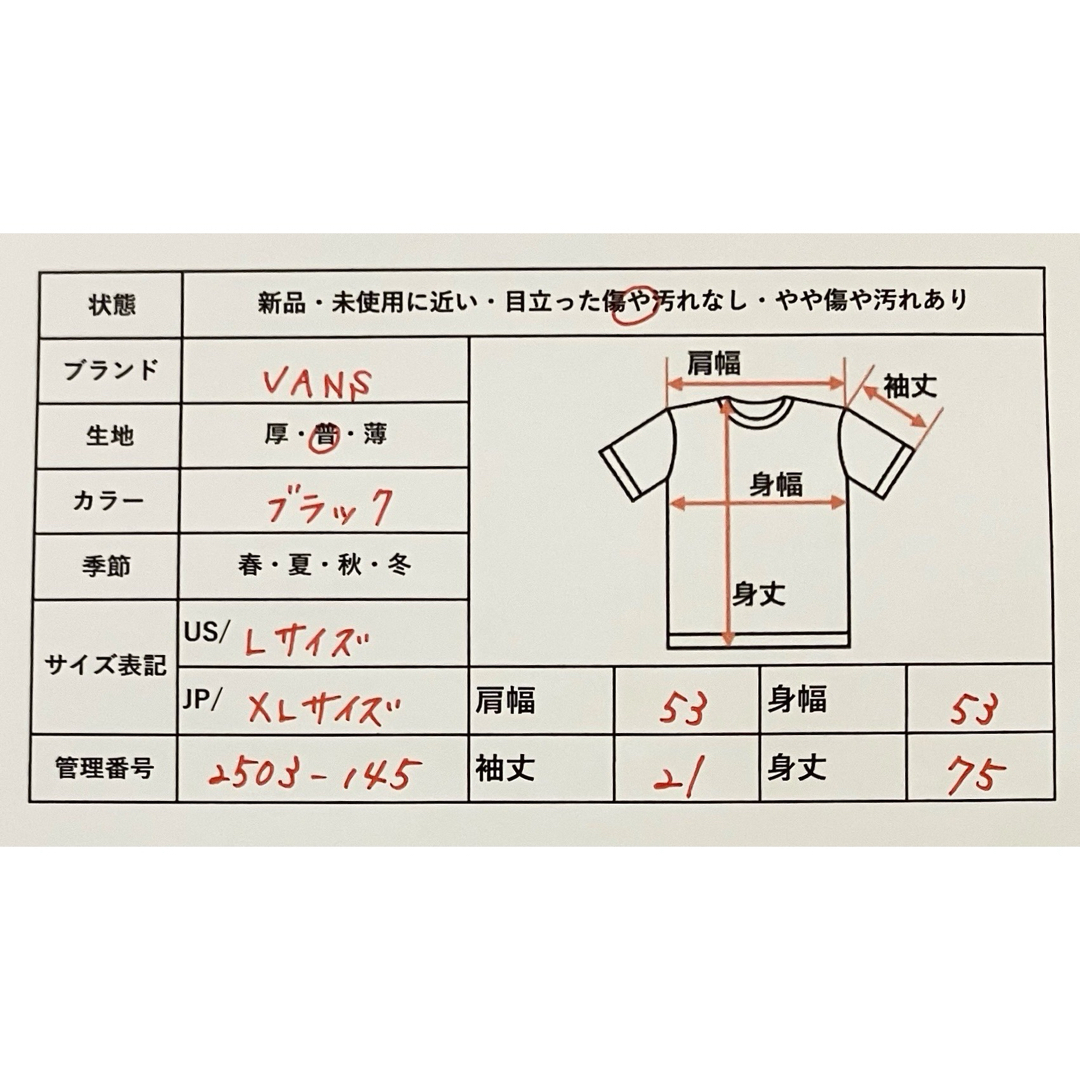 状態 新品・未使用に近い・目立った傷や汚れなし・やや傷や汚れあり
ブランド VANS
生地 厚・普・薄
カラー ブラック
季節 春・夏・秋・冬
サイズ表記 US/ Lサイズ
JP/ XLサイズ
管理番号 2503-145
肩幅
袖丈
身幅
身丈
肩幅 53 身幅 53
袖丈 21 身丈 75